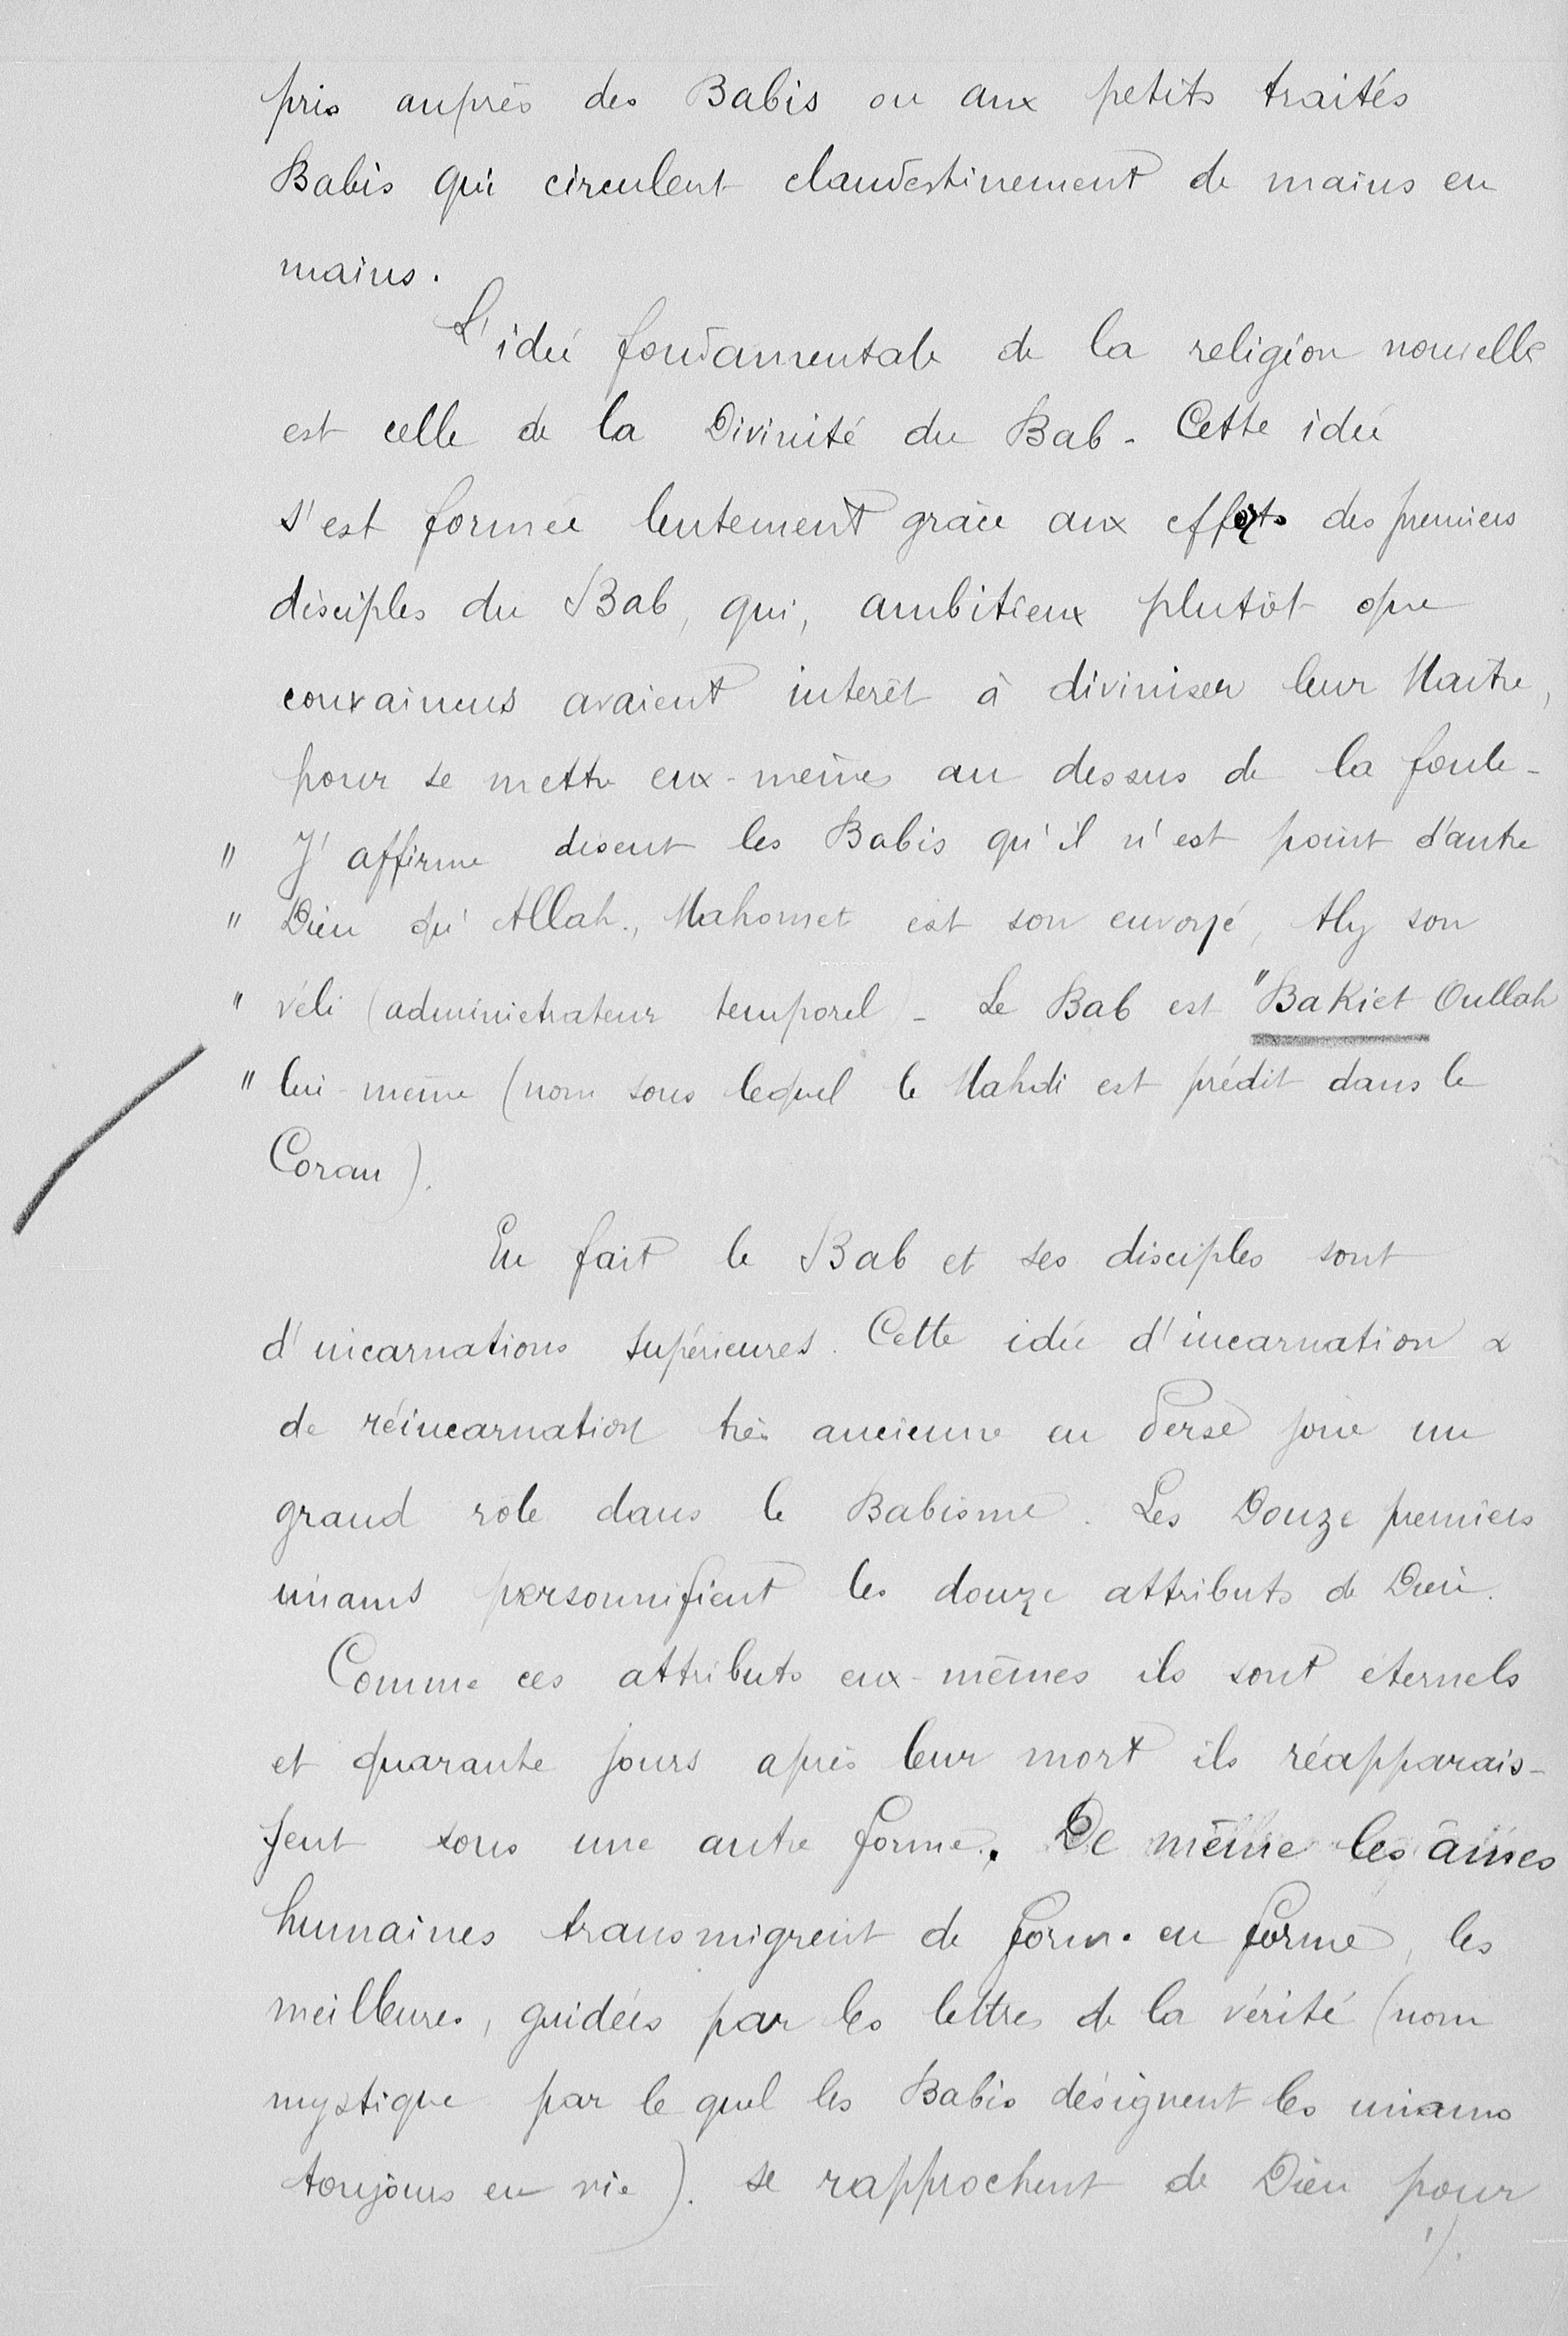 pris auprès des Babis ou aux petits traités
Babis qui circulent clandestinement de mains en
mains.
L'idée fondamentale de la religion nouvelle
est celle de la Divinité du Bab - Cette idée
s'est formée lentement grâce aux efforts des premiers
disciples du Bab, qui, ambitieux plutôt que
convaincus avaient intérêt à diviniser leur Maître,
pour se mettre eux-mêmes au dessus de la foule -
" J'affirme disent les Babis qu'il n'est point d'autre
" Dieu qu'Allah., Mahomet est son envoyé, Aly son
" véli (administrateur temporel) - Le Bab est "Bakiet Oullah
" lui-même (nom sous lequel le Mahdi est prédit dans le
Coran).
En fait le Bab et ses disciples sont
d'incarnations supérieures. Cette idée d'incarnation &
de réincarnation très ancienne en Perse joue un
grand rôle dans le Babisme. Les Douze premiers
imams personnifient les douze attributs de Dieu.
Comme ces attributs eux-mêmes ils sont éternels
et quarante jours après leur mort ils réapparais-
sent sous une autre forme. De même les âmes
humaines transmigrent de forme en forme, les
meilleures, guidées par les lettres de la vérité (nom
mystique par le quel les Babis désignent les imams
toujours en vie). se rapprochent de Dieu pour
./.